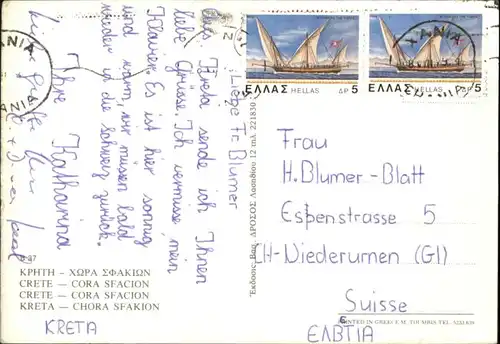 Liebe Fr. Blumer
Aus Kreta sende ich Ihnen
liebe Grüsse. Ich vermisse mein
Klavier. Es ist hier sonnig
und warm, wir müssen bald
wieder in die Schweiz zurück.
Ihre Katharina
ΚΡΗΤΗ – ΧΩΡΑ ΣΦΑΚΙΩΝ
CRETE – CORA SFACION
CRETE – CORA SFACION
KRETA – CHORA SFAKION
KRETA
ΕΛΛΑΣ HELLAS ΔΡ 5
ΕΛΛΑΣ HELLAS ΔΡ 5
XANIA
XANIA
221830
Frau
H. Blumer-Blatt
Espenstrasse 5
CH-Niederurnen (Gl)
Suisse
ΕΛΒΤΙΑ
PRINTED IN GREECE